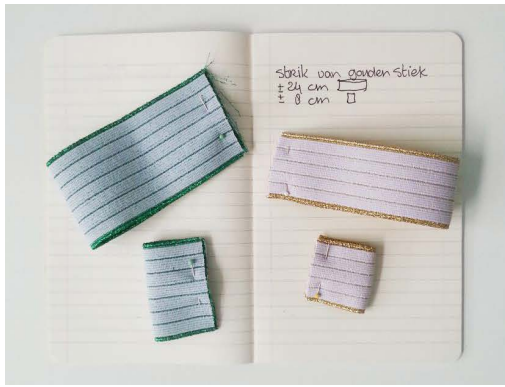 strik van gouden stiek
± 24 cm
± 8 cm